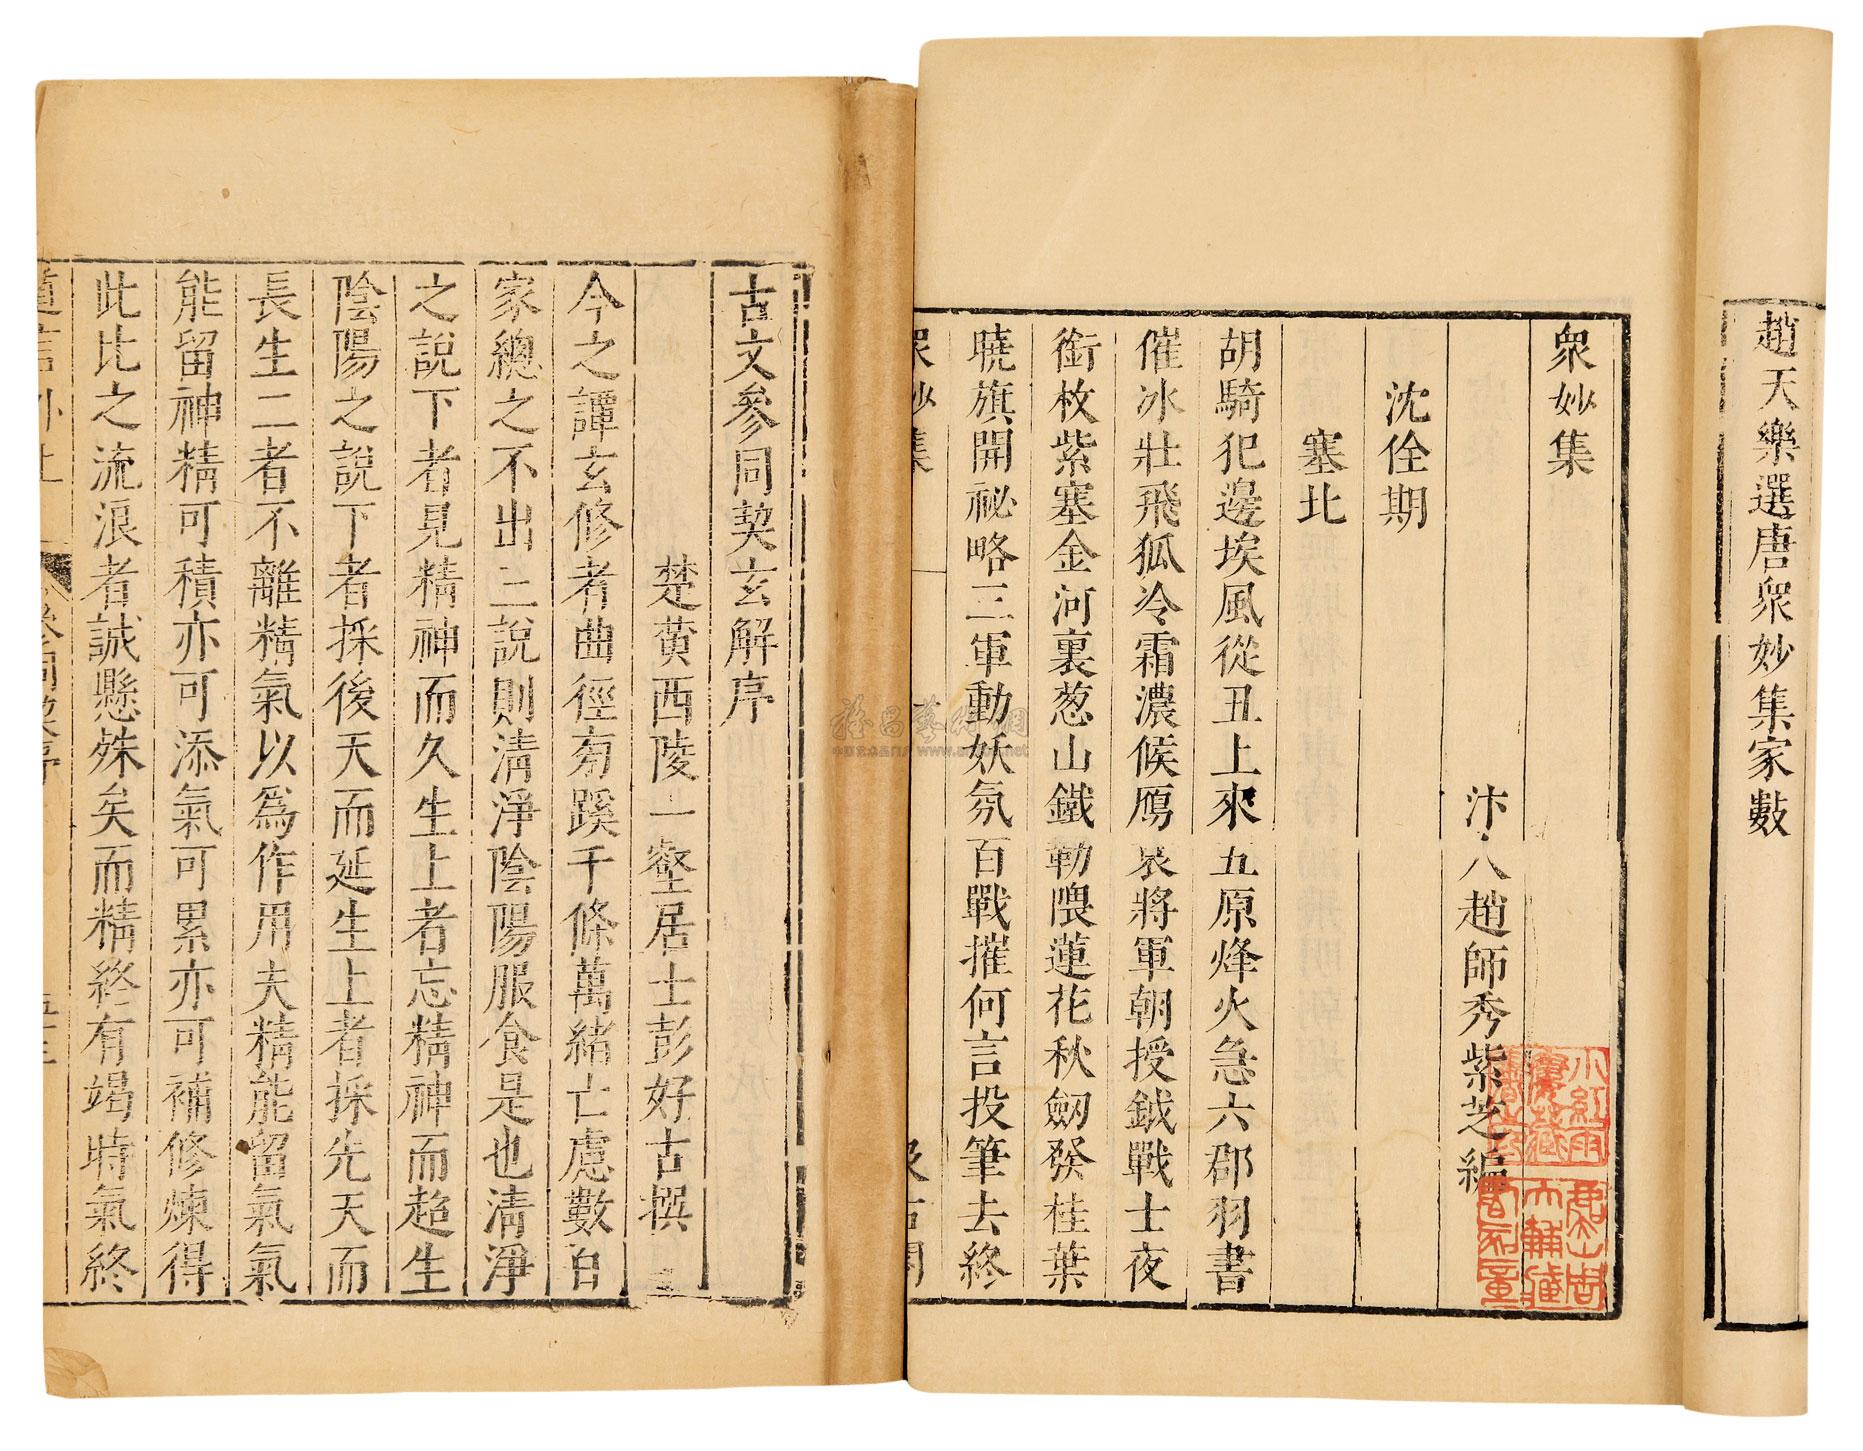 趙天樂選唐衆妙集家數
衆妙集
汴人趙師秀紫芝編
沈佺期
塞北
胡騎犯邊埃風從丑上來五原烽火急六郡羽書
催冰壯飛狐冷霜濃候鴈哀將軍朝授鉞戰士夜
銜枚紫塞金河裏葱山鐵勒隈蓮花秋劒發桂葉
曉旗開祕略三軍動妖氛百戰摧何言投筆去終
衆妙集
汲古閣
古文參同契玄解序
楚黄西陵一壑居士彭好古撰
今之譚玄修者曲徑旁蹊千條萬緒亡慮數百
家總之不出二說則清淨陰陽服食是也清淨
之說下者見精神而久生上者忘精神而超生
陰陽之說下者採後天而延生上者採先天而
長生二者不離精氣以爲作用夫精能留氣氣
能留神精可積亦可添氣可累亦可補修煉得
此比之流浪者誠懸殊矣而精終有竭時氣終
道言外 上
參同契序